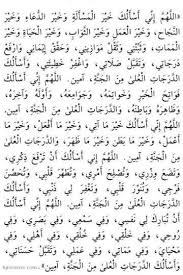 «اللَّهُمَّ إِنِّي أَسْأَلُكَ خَيْرَ الْمَسْأَلَةِ وَخَيْرَ الدُّعَاءِ وَخَيْرَ
النَّجَاحِ، وَخَيْرَ الْعَمَلِ وَخَيْرَ الثَّوَابِ، وَخَيْرَ الْحَيَاةِ وَخَيْرَ
الْمَمَاتِ، وَثَبِّتْنِي وَثَقِّلْ مَوَازِينِي، وَحَقِّقْ إِيمَانِي، وَارْفَعْ
دَرَجَاتِي، وَتَقَبَّلْ صَلَاتِي، وَاغْفِرْ خَطِيئَتِي، وَأَسْأَلُكَ
الدَّرَجَاتِ الْعُلَى مِنَ الْجَنَّةِ، اللَّهُمَّ إِنِّي أَسْأَلُكَ
فَوَاتِحَ الْخَيْرِ، وَخَوَاتِمَهُ، وَجَوَامِعَهُ، وَأَوَّلَهُ، وَآخِرَهُ،
وَظَاهِرَهُ وَبَاطِنَهُ، وَالدَّرَجَاتِ الْعُلَى مِنَ الْجَنَّةِ، آمِينَ.
اللَّهُمَّ إِنِّي أَسْأَلُكَ خَيْرَ مَا آتِي، وَخَيْرَ مَا أَفْعَلُ، وَخَيْرَ مَا
أَعْمَلُ، وَخَيْرَ مَا بَطَنَ وَخَيْرَ مَا ظَهَرَ، وَالدَّرَجَاتِ الْعُلَى
مِنَ الْجَنَّةِ، آمِينَ. اللَّهُمَّ إِنِّي أَسْأَلُكَ أَنْ تَرْفَعَ ذِكْرِي،
وَتَضَعَ وِزْرِي، وَتُصْلِحَ أَمْرِي، وَتُطَهِّرَ قَلْبِي، وَتُحَصِّنَ
فَرْجِي، وَتُنَوِّرَ قَلْبِي، وَتَغْفِرَ لِي ذَنْبِي، وَأَسْأَلُكَ
الدَّرَجَاتِ الْعُلَى مِنَ الْجَنَّةِ، آمِينَ. اللَّهُمَّ إِنِّي أَسْأَلُكَ
أَنْ تُبَارِكَ لِي نَفْسِي، وَفِي سَمْعِي، وَفِي بَصَرِي، وَفِي
رُوحِي، وَفِي خَلْقِي، وَفِي خُلُقِي، وَفِي أَهْلِي، وَفِي
مَحْيَايَ، وَفِي مَمَاتِي، وَفِي عَمَلِي، وَتَقَبَّلْ حَسَنَاتِي،
وَأَسْأَلُكَ الدَّرَجَاتِ الْعُلَى مِنَ الْجَنَّةِ، آمِينَ»